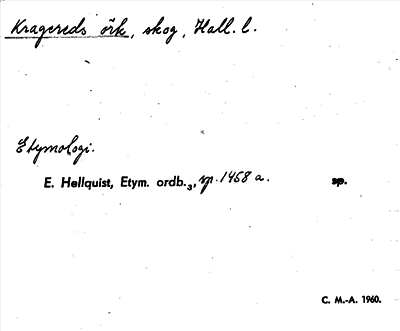 Kragereds örk, skog, Hall. l.
Etymologi.
E. Hellquist, Etym. ordb.₃, sp. 1458 a. sp.
C. M.-A. 1960.